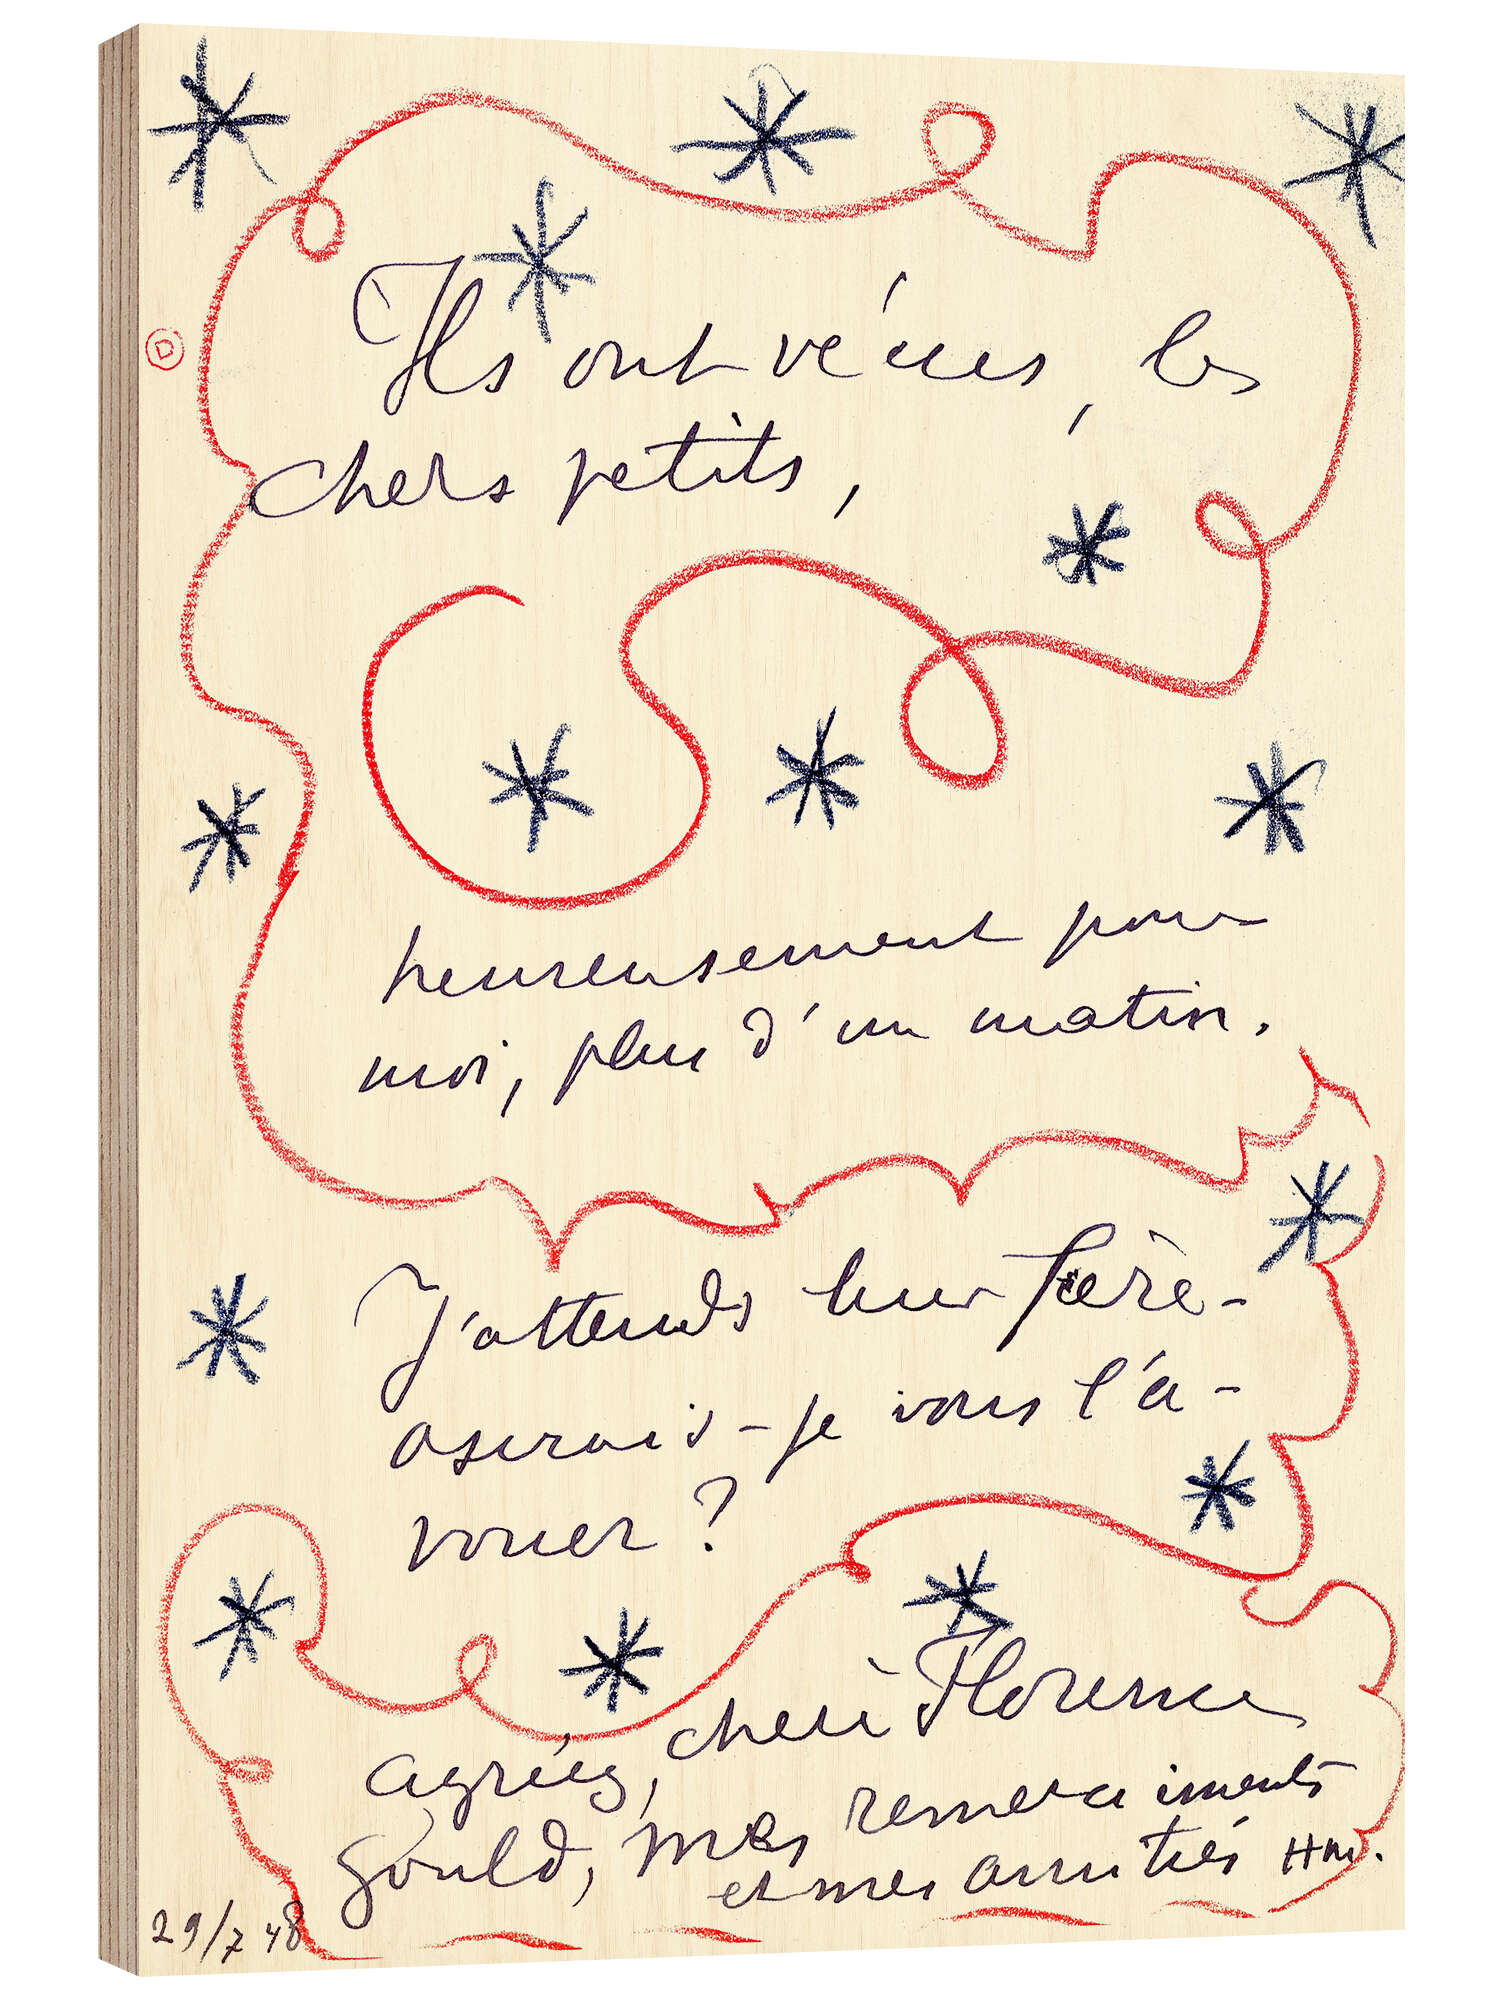 Ils ont vécus, les
chers petits,
heureusement pour
moi, plus d'un matin.
J'attends leur frère -
oserais-je vous l'a-
vouer?
agréez, chère Florence
Gould, mes remerciements
et mes amitiés HM.
29/7 48
D